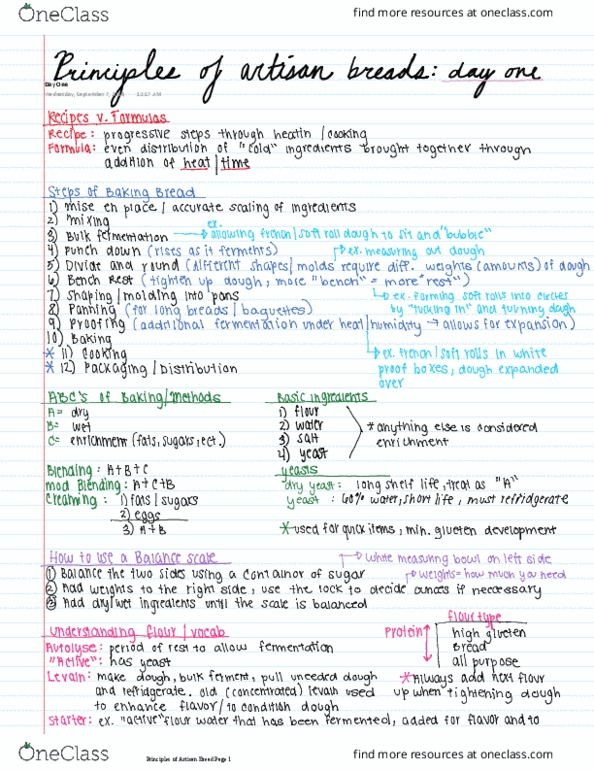 OneClass
find more resources at oneclass.com
Principles of artisan breads: day one
Day One
Wednesday, September 7, 12:57 AM
Recipes v. Formulas
Recipe: progressive steps through heatin/cooking
Formula: even distribution of "cold" ingredients brought together through
addition of heat/time
Steps of Baking Bread
1) mise en place / accurate scaling of ingredients
2) mixing
ex.
3) Bulk fermentation
allowing french/soft roll dough to sit and "bubble"
4) punch down (rises as it ferments)
ex. measuring out dough
5) Divide and round (different shapes/molds require diff. weights (amounts) of dough
6) Bench Rest (tighten up dough, more "bench" = more "rest")
7) Shaping/molding into pans
ex. forming soft rolls into circles
8) Panning (for long breads / baguettes)
by "tucking in" and turning dough
9) Proofing (additional fermentation under heat/humidity → allows for expansion)
10) Baking
* 11) Cooking
ex. french/soft rolls in white
* 12) Packaging / Distribution
proof boxes, dough expanded
over
ABC's of Baking/Methods
A= dry
B= wet
C= enrichment (fats, sugars, ect.)
Basic ingredients
1) flour
2) water
3) salt
4) yeast
* anything else is considered
enrichment
Blending: A+B+C
mod Blending: A+C+B
Creaming: 1) fats/sugars
2) eggs
3) A+B
yeasts
dry yeast: long shelf life, treat as "A"
yeast: 60% water, short life, must refridgerate
* used for quick items, min. glueten development
How to use a Balance scale
white measuring bowl on left side
① Balance the two sides using a containor of sugar
weights = how much you need
② Add weights to the right side, use the lock to decide ounces if necessary
③ Add dry/wet ingredients until the scale is balanced
understanding flour / vocab
Autolyse: period of rest to allow fermentation
"Active": has yeast
Levain: make dough, bulk ferment, pull uneeded dough
and refridgerate. old (concentrated) levain used
to enhance flavor/to condition dough
Starter: ex. "active" flour water that has been fermented, added for flavor and to
flour type
Protein
high glueten
bread
all purpose
* Always add next flour
up when tightening dough
OneClass
Principles of Artisan Bread Page 1
find more resources at oneclass.com